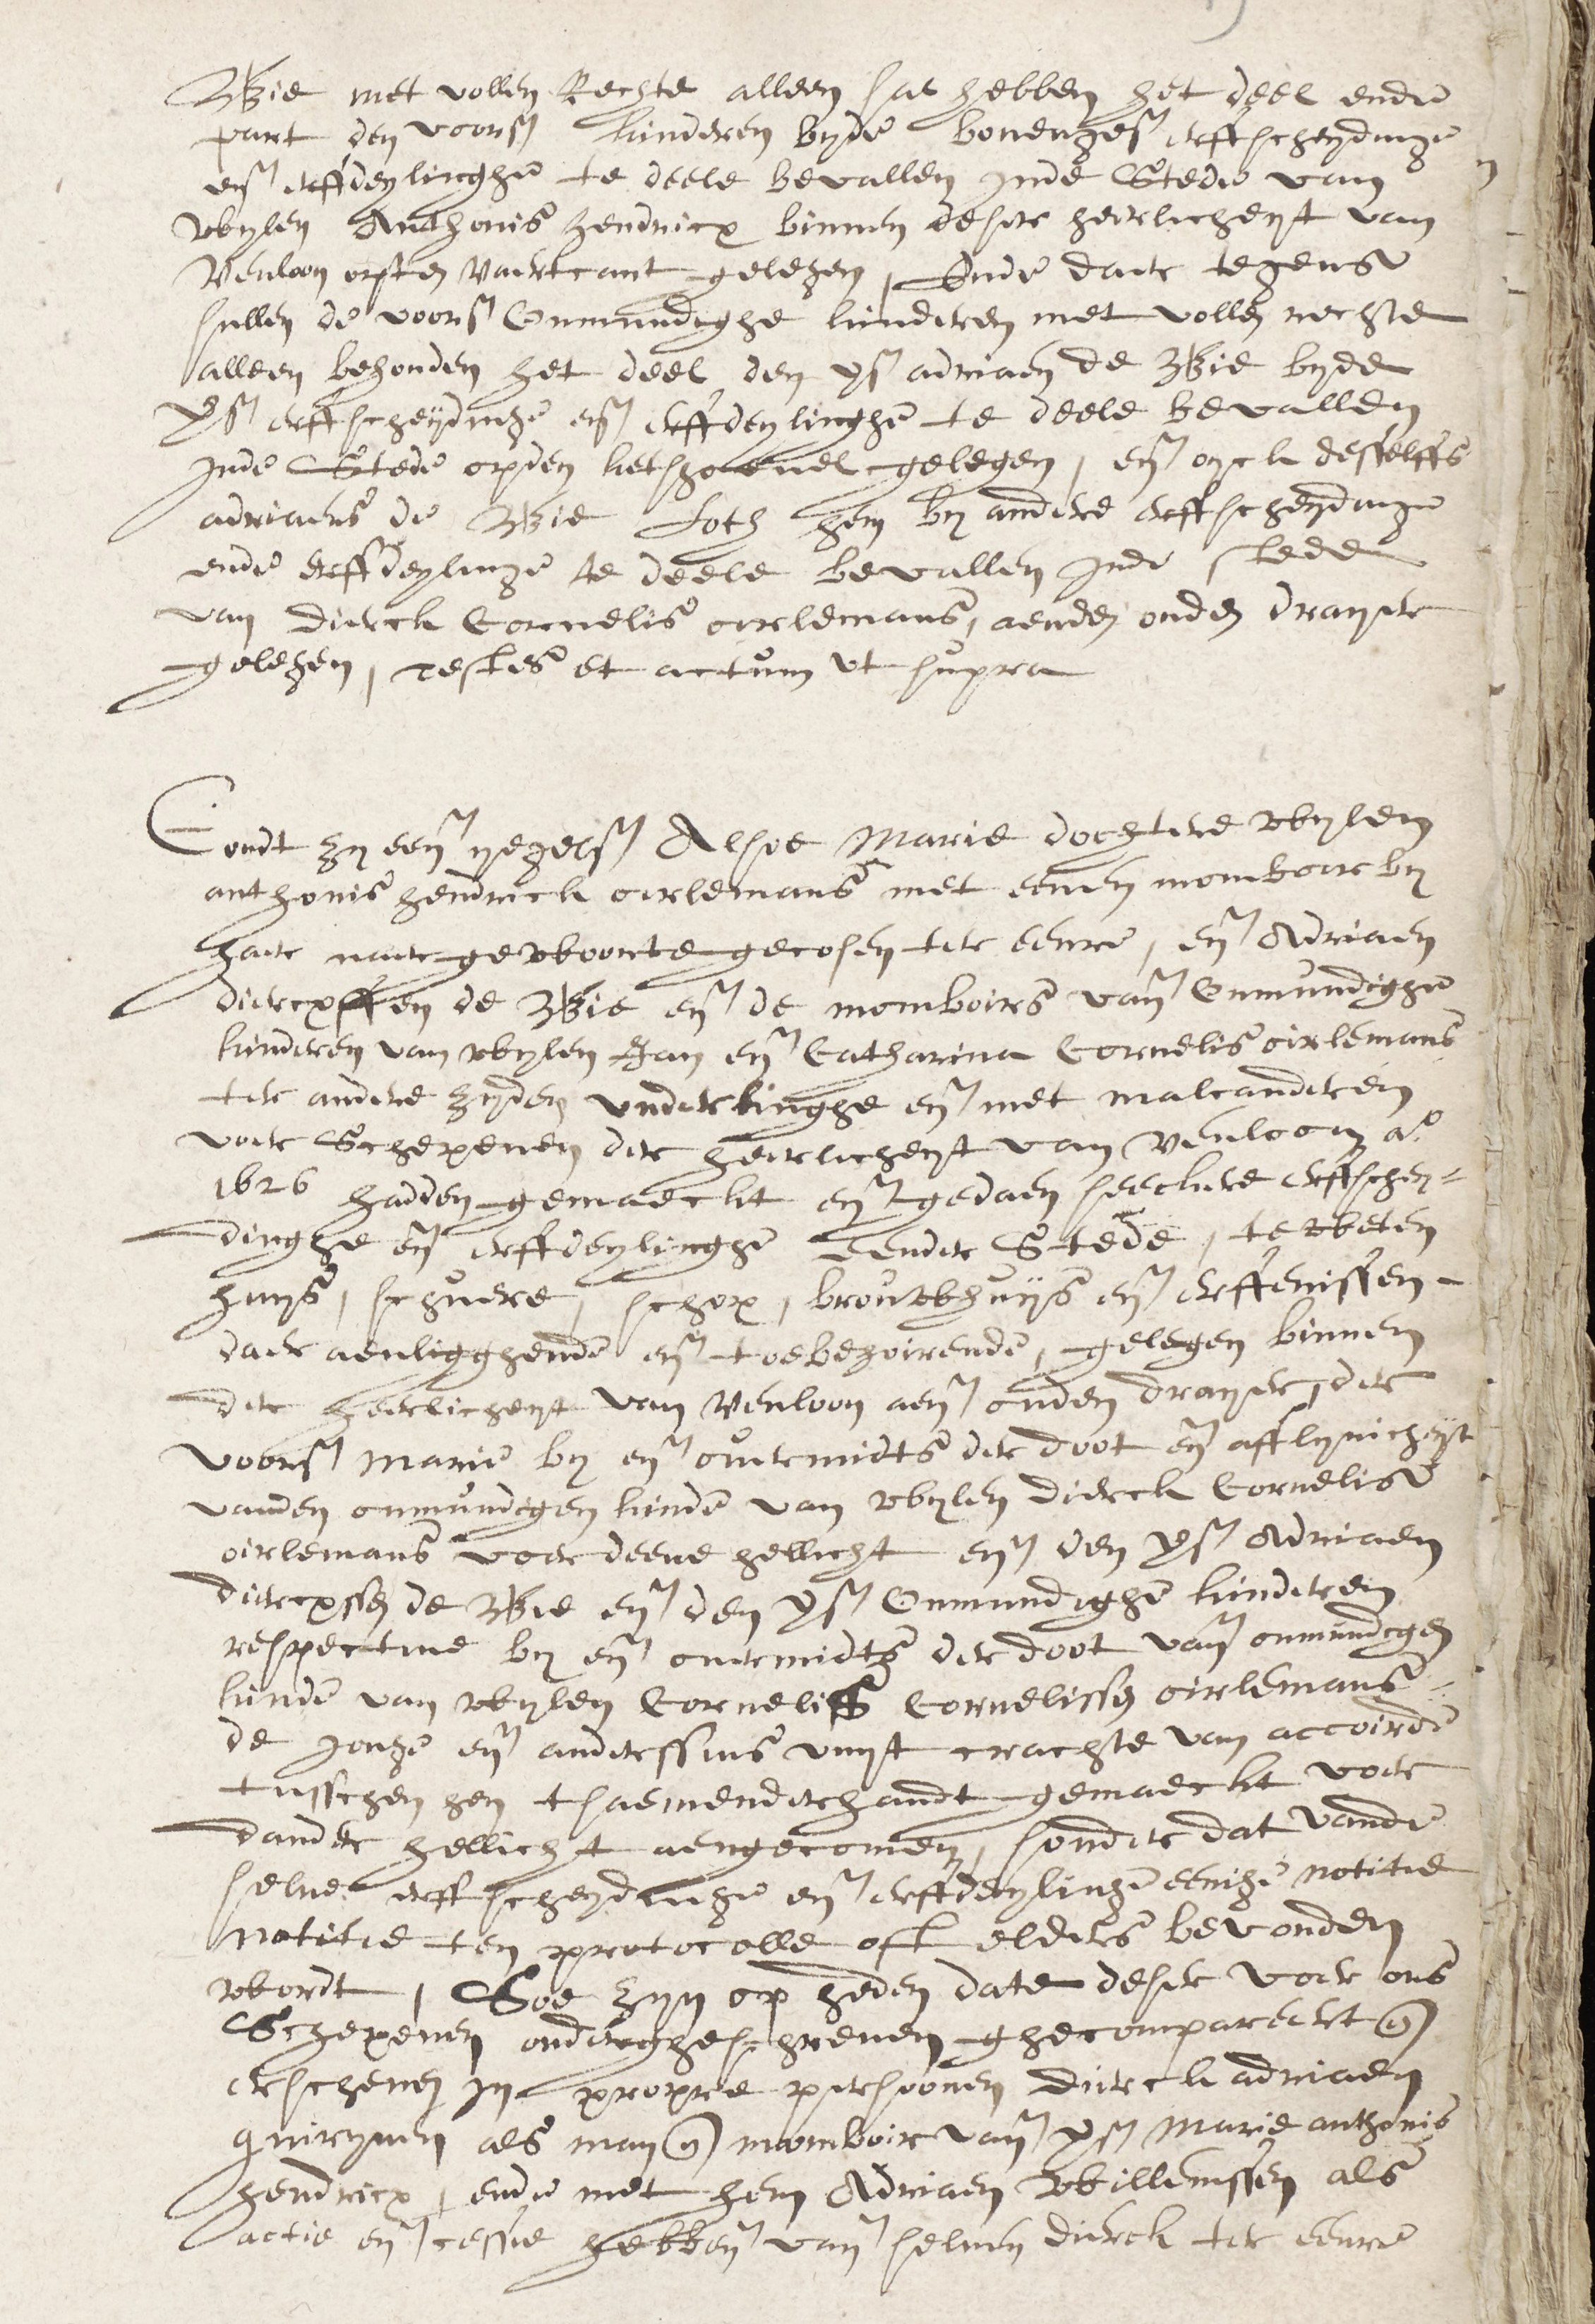 Wie met vollen Rechte alleen sal hebben het deel ende
part den voors kinderen byde bovenges erffscheydinge
en erffdeylinghe te deele bevallen inde Stede van
wylen Anthonis hendricx binnen deser heerlicheyt van
Venloon opten Vaertcant gelegen, Ende daer tegens
sullen de voors Onmundighe kinderen met vollen rechte
alleen behouden het deel den vs adriaen de Wie byde
vs erffscheydinge en erffdeylinghe te deele bevallen
inde Stede opden ketshoevel gelegen, en oyck desselffs
adriaens de Wie Loth hem by andere erffscheydinge
ende erffdeylinge te deele bevallen inde stede
van dierck Cornelis oirlemans, aenden ouden drayer
gelegen, testes et actum ut supra
Condt zy een yegels Alsoe Marie dochtere wylen
anthonis hendrick oerlemans met eenen momboir by
haer naer gewoonte gecosen ter eenre, en Adriaen
diercxssen de Wie en de momboirs van Onmundighe
kinderen van wylen Jan en Catharina Cornelis oirlemans
ter andere zyden underlinghe en met malcanderen
voer Schepenen der heerlicheyt van Venloon ao
1626 hadden gemaeckt en gedaen seeckere erffschey-
dinghe en erffdeylinghe eender Stede, te weten
huys, schuere, schop, brouwhuys en erffenissen
daer aenligghende en toebehoirende, gelegen binnen
der heerlicheyt van Venloon aen ouden drayer, der
voors Marie by en overmidts der doot en afflyvicheyt
vanden onmundigen kinde van wylen dierck Cornelis
oirlemans voer deene hellicht en den vs Adriaen
diercxssen de Wie en den vs Onmundighe kinderen
respective by en overmidts der doot van onmundigen
kinde van wylen Cornelis Cornelissen oirlemans
de Jonge en anderssins vuyt crachte van accoirde
tusschen hen tsaemenderhandt gemaeckt voer
dander hellicht aengecomen, sonder dat vande
selve erffscheydinge en erffdeylinge eenige notitie
notitie ten protocolle oft elders bevonden
wordt, Soe zyn op heden date deser voer ons
Schepenen ondergheschreven ghecompareert en
erschenen in propre persoonen dierck adriaen
quirynen als man en momboir van vs Marie anthonis
hendricx, ende met hem Adriaen Willemssen als
actie en cessie hebben van selven dierck ter eenre